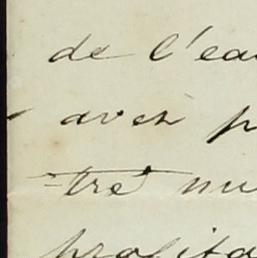 de l'eau
avez p
tre nu
profita